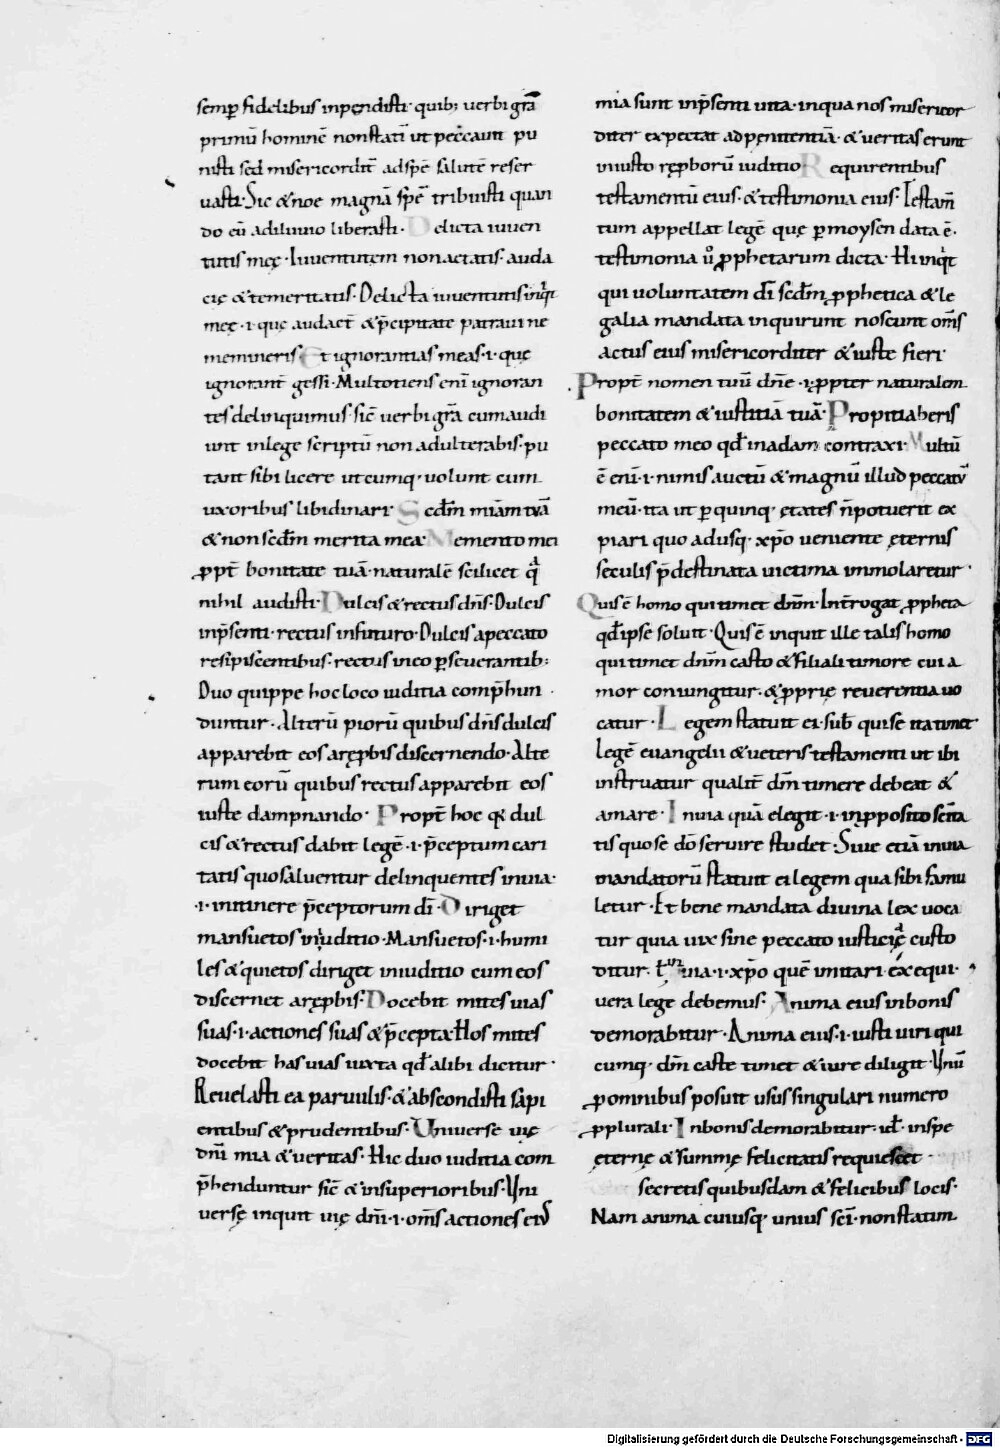 semꝑ fidelibus inpendisti· quib; uerbi grā
primū hominē non statī ut peccauit pu
nisti sed misericordit̄ ad spē salutē reser
uasti· Sic & noe magnā spē tribuisti quan
do eū a diluuio liberasti· Delicta iuuen
tutis meę· Iuuentutem non aetatis· auda
cię & temeritatis· Delicta iuuentutis inq͛t
meę· i· que audact̄ & p̄cipitate patraui ne
memineris· Et ignorantias meas· i· quę
ignorant̄ gessi· Multotiens enī ignoran
tes delinquimus· sic̄ uerbi grā cum audi
unt in lege scriptū non adulterabis· pu
tant sibi licere utcumq· uolunt cum
uxoribus libidinari· Scdm̄ miām tuā
& non scdm̄ merita mea· Memento mei
ꝓpt̄ bonitate tuā· naturalē scilicet q̊
nihil audisti· Dulcis & rectus dn̄s· Dulcis
inp̄senti· rectus in futuro· Dulcis a peccato
resipiscentibus· rectus in eo ꝑseuerantib;
Duo quippe hoc loco iuditia comp̄hen
duntur· Alterū piorū quibus dn̄s dulcis
apparebit eos a rep̱bis discernendo· Alte
rum eorū quibus rectus apparebit eos
iuste dampnando· Propt̄ hoc qđ dul
cis & rectus dabit legē· i· p̄ceptum cari
tatis quo saluentur delinquentes in uia·
·i· in itinere p̄ceptorum dī· Diriget
mansuetos in iuditio· Mansuetos· i· humi
les & quietos diriget in iuditio cum eos
discernet a reꝓbis· Docebit mites uias
suas· i· actiones suas & p̄cepta· Hos mites
docebit has uias iuxta qđ alibi dicitur·
Reuelasti ea paruulis· & abscondisti sapi
entibus & prudentibus· Uniuerse uię
dn̄i mīa & ueritas· Hic duo iuditia com
p̄henduntur sic̄ & in superioribus· Uni
uersę inquit uię dn̄i· i· om̄s actiones eius
mia sunt inp̄senti uita· in qua nos misericor
diter expectat ad penitentiā· & ueritas erunt
in iusto reꝓborū iuditio· Requirentibus
testamentū eius· & testimonia eius· Testam̄
tum appellat legē que ꝑ moysen data ē·
testimonia ů ꝓphetarum dicta· Hi inq͛t
qui uoluntatem dī scdm̄ ꝓphetica & le
galia mandata inquirunt noscunt om̄s
actus eius misericorditer & iuste fieri·
Propt̄ nomen tuū dn̄e· i· ꝓpter naturalem
bonitatem & iustitiā tuā· Propitiaberis
peccato meo qđ in adam contraxi· Multū
ē enī· i· nimis auctū & magnū illud peccatū
meū· ita ut ꝑ quinq· ętates n̄ potuerit ex
piari quo adusq· xp̄o ueniente ęternis
seculis p̄destinata uictima immolaretur·
Quis ē homo qui timet dn̄m· Int̄rogat ꝓpheta
qđ ipse soluit· Quis ē inquit ille talis homo
qui timet dn̄m casto & filiali timore cui a
mor coniungitur· & ꝓprię reuerentia uo
catur· Legem statuit ei· sub qui se ita timet
legē euangelii & ueteris testamenti ut ibi
instruatur qualit̄ dm̄ timere debeat &
amare· In uia quā elegit· i· in ꝓposito sc̄ita
tis quo se dō seruire studet· Siue etiā in uia
mandatorū statuit ei legem qua sibi famu
letur· Et bene mandata diuina lex uoca
tur quia uix sine peccato iusticię custo
ditur· uia· i· xp̄o quē imitari & exequi·
uera lege debemus· Anima eius in bonis
demorabitur· Anima eius· i· iusti uiri qui
cumq· dm̄ caste timet & iure diligit· Unū
ꝓ omnibus posuit usus singulari numero
ꝓ plurali· In bonis demorabitur· id· in spe
ęternę & summę felicitatis requiescet·
secretis quibusdam & felicibus locis·
Nam anima cuiusq· unius sc̄i· non statim
Digitalisierung gefördert durch die Deutsche Forschungsgemeinschaft - DFG